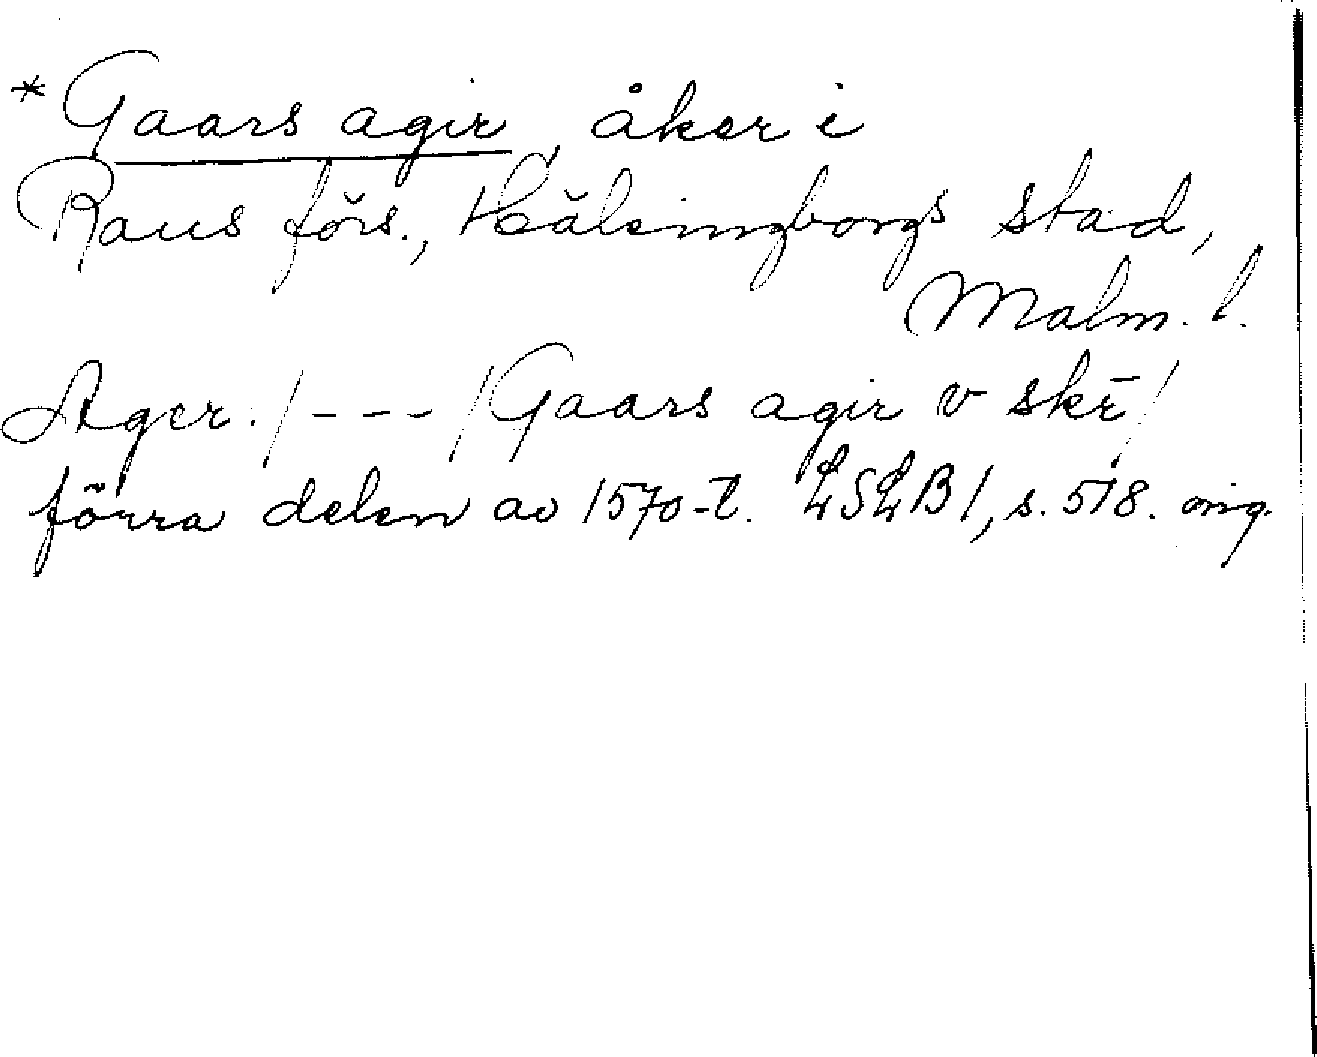 * Gaars agir, åker i
Raus förs., Hälsingborgs stad,
Malm. l.
Ager. / - - - / Gaars agir v skr̄ /
förra delen av 1570-t. LSLB 1, s. 518. orig.